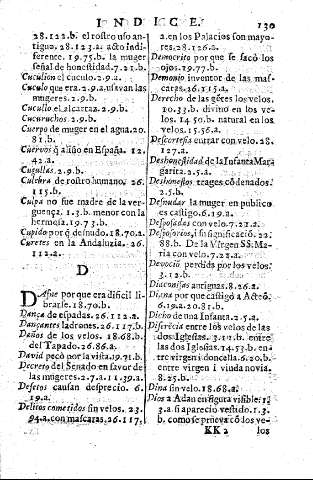 INDICE. 130
28.122.b. el rostro nõ an-
tigua. 28.123.a. acto indi-
ferente. 19.75.b. la muger
señal de honestidad. 7.21.b.
Cuculion el cuculo. 29.a.
Cuculo que era. 29.a. usavan las
mugeres. 29.b.
Cucullo el alcartaz. 29.b.
Cucuruchos. 29.b.
Cuerpo de muger en el agua. 20.
81.b.
Cuervos q̃ aliño en España. 12.
42.a.
Cugullas. 29.b.
Culebra de rostro humano. 26.
115.b.
Culpa no fue madre de la ver-
guença. 1.3.b. menor con la
hermosa. 19.73.b.
Cupido por q̃ desnudo. 18.70.a.
Curetes en la Andaluzia. 26.
112.a.
D
DAfne por que era dificil li-
brarse. 18.70.b.
Dança de espadas. 26.112.a.
Dançantes ladrones. 26.117.b.
Daños de los velos. 18.68.b.
del Tapado. 26.86.a.
David pecò por la vista. 19.71.b.
Decreto del Senado en favor de
las mugeres. 2.7.a. 11.39.a.
Defetos causan desprecio. 6.
19.a.
Delitos cometidos sin velos. 23.
94.a. con mascaras. 26.117.
a. en los Palacios son mayo-
res. 28.126.a.
Democrito por que se sacò los
ojos. 19.77.b.
Demonio inventor de las mas-
caras. 26.115.a.
Derecho de las gẽtes los velos.
10.33.b. divino en los ve-
los. 14.50.b. natural en los
velos. 15.56.a.
Descortesia entrar con velo. 28.
127.a.
Deshonestidad de la Infanta Mar-
garita. 2.5.a.
Deshonestos trages cõdenados.
2.5.b.
Desnudar la muger en publico
es castigo. 6.19.a.
Desposadas con velo. 7.21.a.
Desposorios, i su significaciõ. 22.
88.b. De la Virgen SS. Ma-
ria con velo. 7.23.a.
Devociõ perdida por los velos.
3.12.b.
Diaconisas antiguas. 8.26.a.
Diana por que castigò a Acteõ.
6.19.a. 20.81.b.
Dicho de una Infanta. 2.5.a.
Diferẽcia entre los velos de las
dos Iglesias. 3.11.b. entre
las dos Iglesias. 14.53.b. en-
tre virgen i doncella. 6.20.b.
entre virgen i viuda novia.
8.25.b.
Dina sin velo. 18.68.a.
Dios a Adan en figura visible. 1.
3.a. si apareciò vestido. 1.3.
b. como se prueva cõ los ve-
KK 2 los